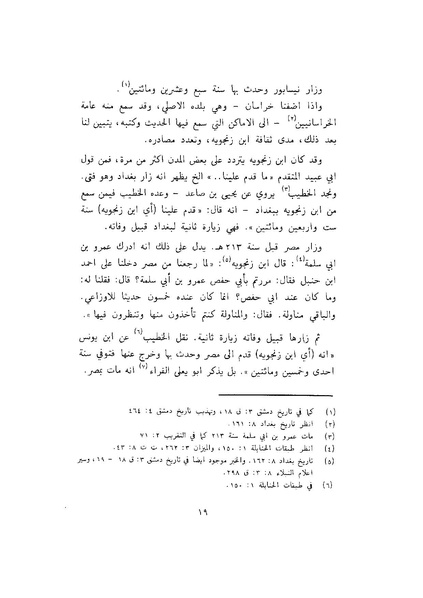 وزار نيسابور وحدث بها سنة سبع وعشرين ومائتين(١).
واذا اضفنا خراسان – وهي بلده الاصلي، وقد سمع منه عامة
الخراسانيين(٢) – الى الاماكن التي سمع فيها الحديث وكتبه، يتبين لنا
بعد ذلك، مدى ثقافة ابن زنجويه، وتعدد مصادره.
وقد كان ابن زنجويه يتردد على بعض المدن اكثر من مرة، فمن قول
ابي عبيد المتقدم «ما قدم علينا.. » الخ يظهر انه زار بغداد وهو فتى.
ونجد الخطيب(٣) يروي عن يحيى بن صاعد – وعده الخطيب فيمن سمع
من ابن زنجويه ببغداد – انه قال: «قدم علينا (أي ابن زنجويه) سنة
ست واربعين ومائتين». فهي زيارة ثانية لبغداد قبيل وفاته.
وزار مصر قبل سنة ٢١٣ هـ. يدل على ذلك انه ادرك عمرو بن
ابي سلمة(٤): قال ابن زنجويه(٥): «لما رجعنا من مصر دخلنا على احمد
ابن حنبل فقال: مررتم بأبي حفص عمرو بن أبي سلمة؟ قال: فقلنا له:
وما كان عند ابي حفص؟ انما كان عنده خمسون حديثا للاوزاعي.
والباقي مناولة. فقال: والمناولة كنتم تأخذون منها وتنظرون فيها».
ثم زارها قبيل وفاته زيارة ثانية. نقل الخطيب(٦) عن ابن يونس
«انه (أي ابن زنجويه) قدم الى مصر وحدث بها وخرج عنها فتوفي سنة
احدى وخمسين ومائتين». بل يذكر ابو يعلى الفراء(٧) انه مات بمصر.
(١) كما في تاريخ دمشق ٣: ق ١٨، وتهذيب تاريخ دمشق ٤: ٤٦٤
(٢) انظر تاريخ بغداد ٨: ١٦١.
(٣) مات عمرو بن ابي سلمة سنة ٢١٣ كما في التقريب ٢: ٧١
(٤) انظر طبقات الحنابلة ١: ١٥٠، والميزان ٣: ٢٦٢، ت ت ٨: ٤٣.
(٥) تاريخ بغداد ٨: ١٦٢. والخبر موجود ايضا في تاريخ دمشق ٣: ق ١٨ – ٦٩، وسير
اعلام النبلاء ٨: ٣: ق ٢٩٨.
(٦) في طبقات الحنابلة ١: ١٥٠.
١٩